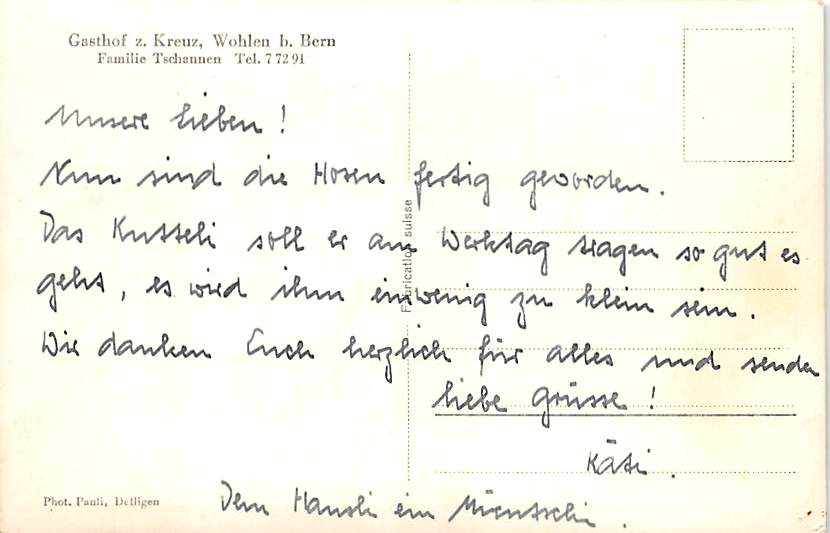 Gasthof z. Kreuz, Wohlen b. Bern
Familie Tschannen Tel. 7 72 91
Unsere Lieben!
Nun sind die Hosen fertig geworden.
Das Kutteli soll er am Werktag tragen so gut es
geht, es wird ihm einwenig zu klein sein.
Wir danken Euch herzlich für alles und senden
liebe Grüsse!
Käti.
Dem Hansli ein Müntschi.
Fabrication suisse
Phot. Pauli, Detligen